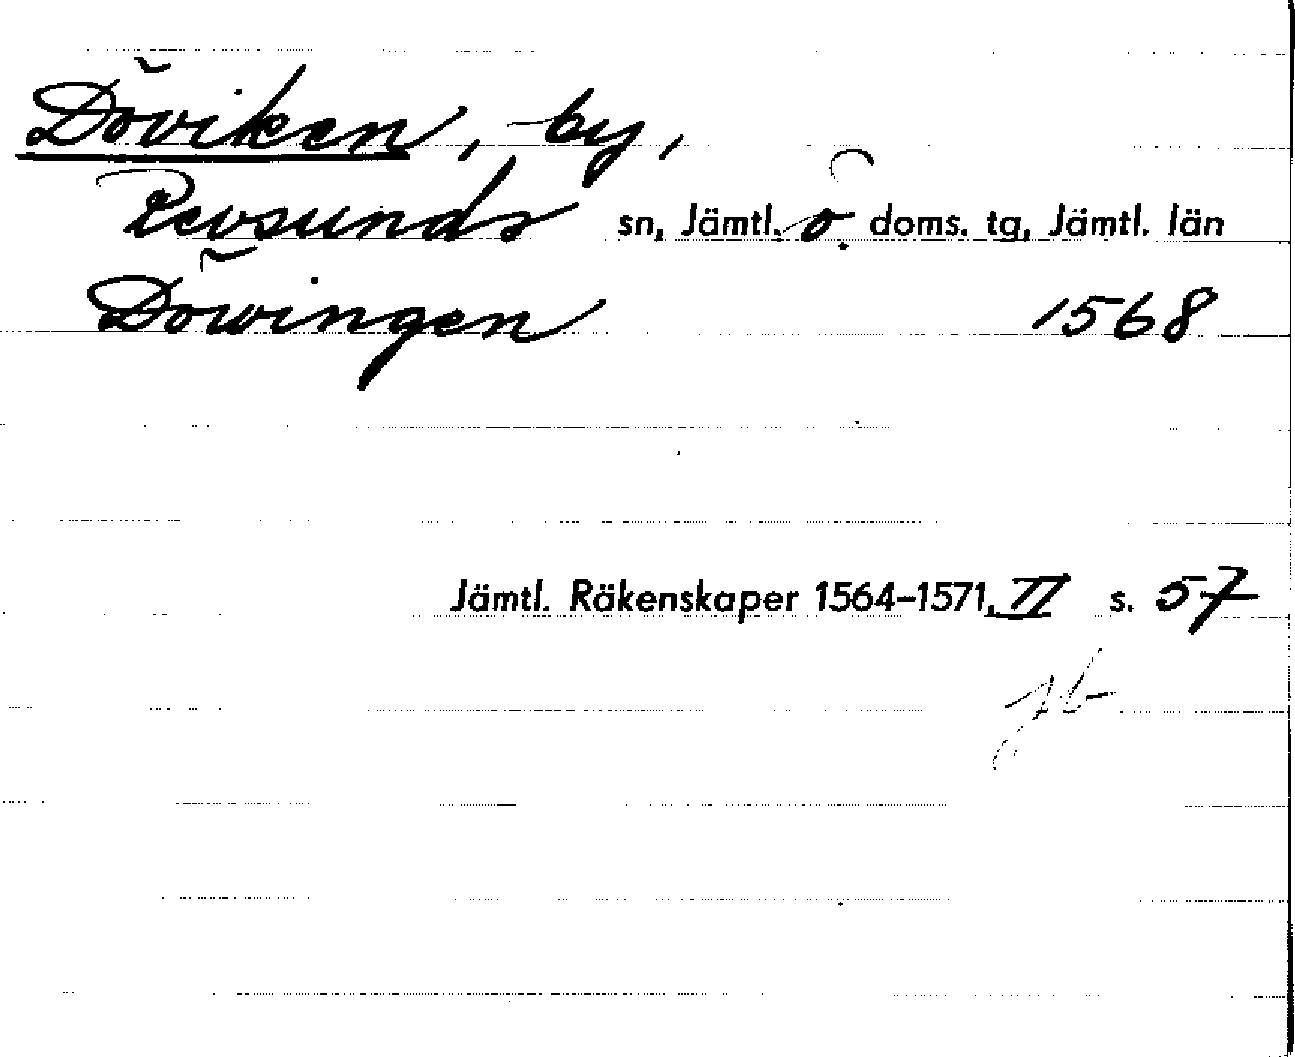 Döviken, by,
Revsunds sn, Jämtl. ö. doms. tg, Jämtl. län
Döwingen 1568
Jämtl. Räkenskaper 1564–1571, II s. 57
jb